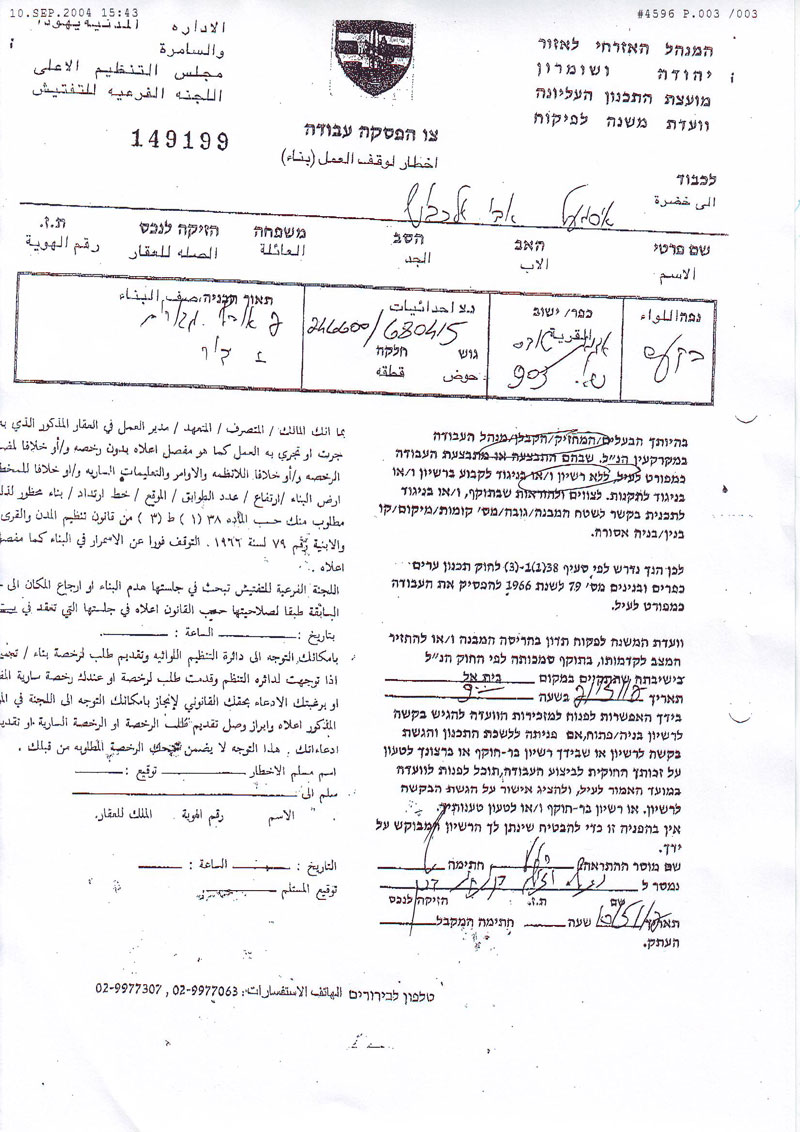 10.SEP.2004 15:43
#4596 P.003 /003
המנהל האזרחי לאזור
יהודה ושומרון
מועצת התכנון העליונה
וועדת משנה לפיקוח
الاداره المدنيه يهودا
والسامرة
مجلس التنظيم الاعلى
اللجنه الفرعيه للتفتيش
149199
צו הפסקה עבודה
اخطار لوقف العمل (بناء)
לכבוד
الى حضرة
שם פרטי האב הסב משפחה הזיקה לנכס ת.ז.
الاسم الاب الجد العائلة الصله للعقار رقم الهوية
נפה/אללואء
כפר/ ישוב
القرية
903
נ.צ احداثيات
246600/680415
גוש חלקה
حوض قطقه
תאור הבניה/صف البناء
בהיותך הבעלים/המחזיק/הקבלן/מנהל העבודה
במקרקעין הנ"ל. שבהם התבצעה או מתבצעת העבודה
כמפורט לעיל, ללא רשיון ו/או בניגוד לקבוע ברשיון ו/או
בניגוד לתקנות. לצווים ולהוראות שבתוקף, ו/או בניגוד
לתכנית בקשר לשטח המבנה/גובה/מס' קומות/מיקום/קו
בנין/בניה אסורה.
לכן הנך נדרש לפי סעיף 38(1)-1(3) לחוק תכנון ערים
כפרים ובנינים מס' 79 לשנת 1966 להפסיק את העבודה
כמפורט לעיל.
וועדת המשנה לפקוח תדון בהריסה המבנה ו/או להחזיר
המצב לקדמותו, בתוקף סמכותה לפי החוק הנ"ל
בישיבתה שתתקיים במקום בית אל
תאריך בשעה
בידך האפשרות לפנות למזכירות הוועדה להגיש בקשה
לרשיון בניה/פתוח,אם פניתה ללשכת התכנון והגשת
בקשה לרשיון או שבידך רשיון בר-חוקף או ברצונך לטעון
על זכותך החוקית לביצוע העבודה,תוכל לפנות לוועדה
במועד האמור לעיל, ולהציג אישור על הגשת הבקשה
לרשיון. או רשיון בר-חוקף ו/או לטעון טענותיך.
אין בהפניה זו כדי להבטיח שינתן לך הרשיון המבוקש על
ידך.
שם מוסר ההתראה חתימה
נמסר ל
שם ת.ז. הזיקה לנכס
תאריך שעה חתימה המקבל
העתק.
بما انك المالك/ المتصرف / المتعهد / مدير العمل في العقار المذكور الذي
جرت او تجري به العمل كما هو مفصل اعلاه بدون رخصه و/أو خلافا
الرخصه و/أو خلافا للانظمه والاوامر والتعليمات الساريه و/او خلافا
ارض البناء /ارتفاع / عدد الطوابق / الموقع / خط ارتداد / بناء محظور
مطلوب منك حسب الماده ٣٨ (١) ط (٣) من قانون تنظيم المدن والقرى
والابنية رقم ٧٩ لسنة ١٩٦٦ . التوقف فورا عن الاسمرار في البناء كما
اعلاه .
اللجنة الفرعية للتفتيش تبحث في جلستها هدم البناء او ارجاع المكان الى
السابقة طبقا لصلاحيتها حسب القانون اعلاه في جلستها التي تعقد في
بتاريخ : الساعة :
بامكانك التوجه الى دائرة التنظيم اللوائيه وتقديم طلب لرخصة بناء /
اذا توجهت لدائره التنظم وقدمت طلب لرخصة او عندك رخصة سارية
او برغبتك الادعاء بحقك القانوني لإنجاز بامكانك التوجه الى اللجنة في
المذكور اعلاه وابراز وصل تقديم طلب الرخصة او الرخصة السارية او
ادعاءاتك . هذا التوجه لا يضمن منحك الرخصة المطلوبه من قبلك .
اسم مسلم الاخطار توقيع :
سلم الى
الاسم رقم الهوية الملك للعقار.
التاريخ : الساعة :
توقيع المستلم
טלפון לבירורים الهاتف الاستفسارات: 02-9977063 , 02-9977307